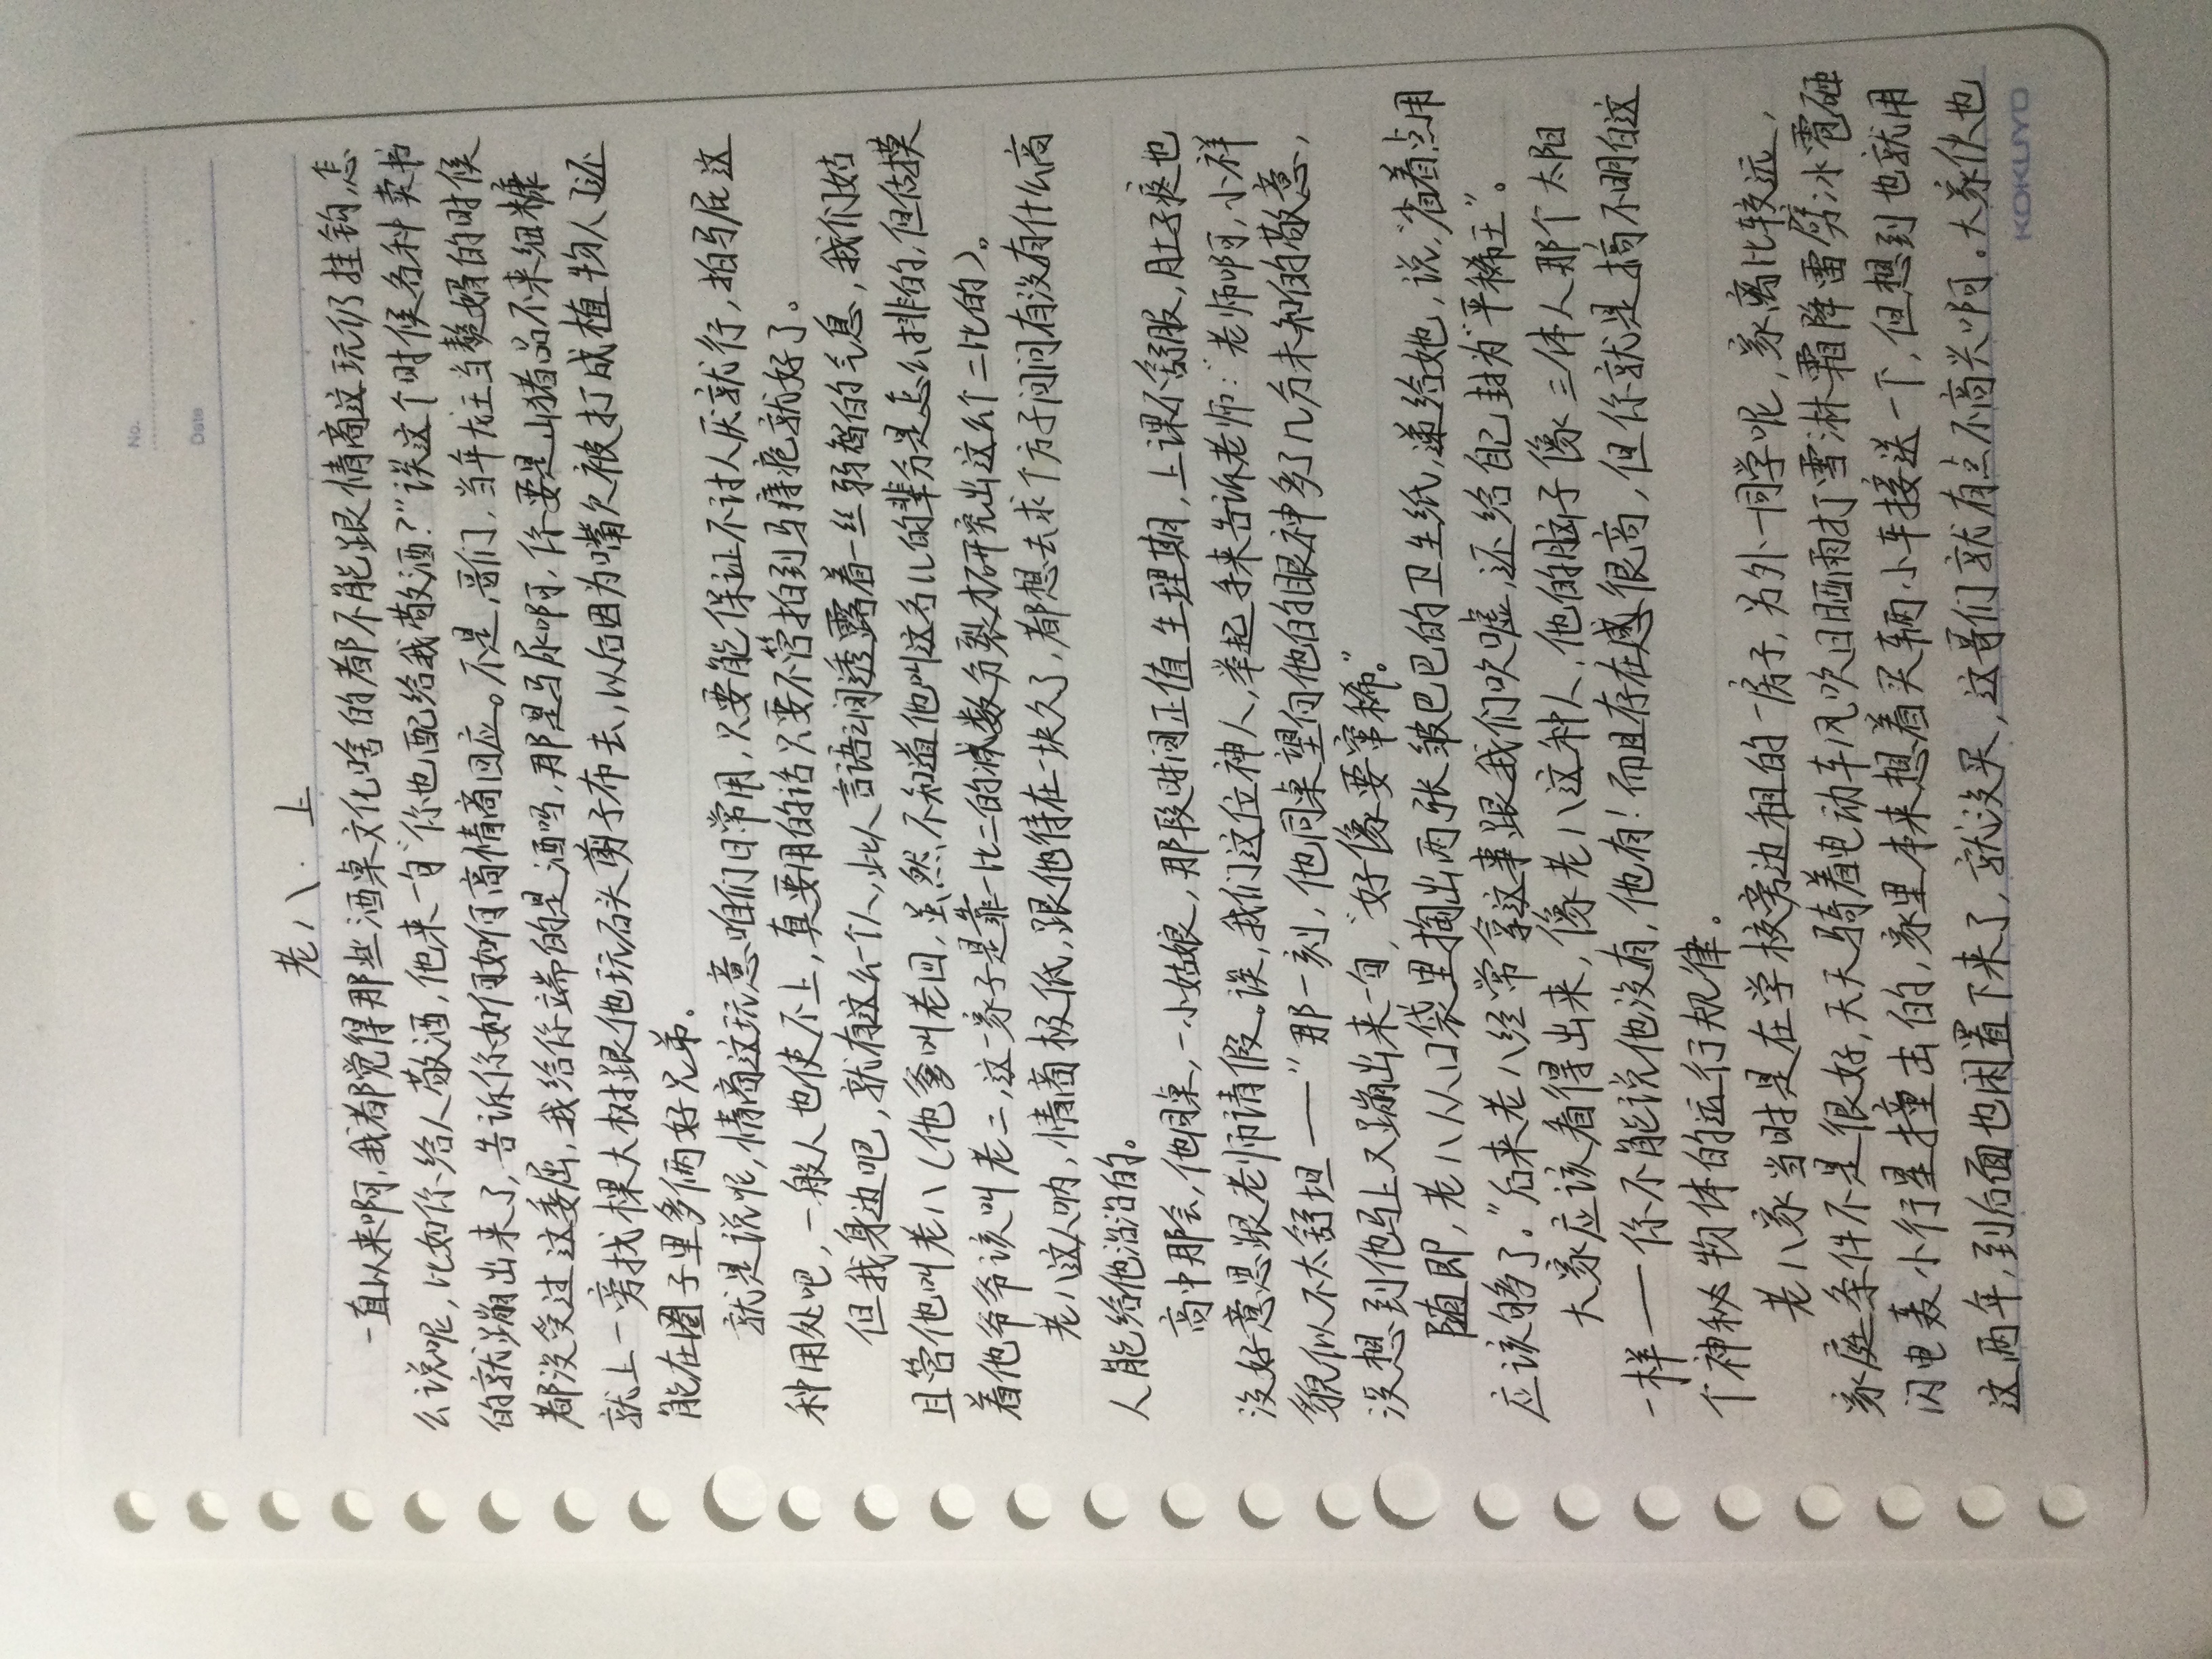 No.
Date
老八·上
一直以来啊,我都觉得那些酒桌文化啥的都不能跟情商这玩仍挂钩,怎
么说呢,比如你给人敬酒,他来一句“你也配给我敬酒?”诶这个时候各种卖书
的就蹦出来了,告诉你如何如何高情商回应。不是,哥们,当年龙王当赘婿的时候
都没受过这委屈,我给你端的是酒吗,那是马尿啊,你要是山猪品不来细糠
就上一旁找棵大树跟他玩石头剪子布去,以后因为嘴欠被打成植物人了还
能在圈子里多俩好兄弟。
就是说呢,情商这玩意咱们日常用,只要能保证不讨人厌就行,拍马屁这
种用处吧,一般人也使不上,真要用的话只要不管拍到马痔疮就好了。
但我身边吧,就有这么一个人,此人言语之间透露着一丝弱智的气息,我们姑
且管他叫老八(他爹叫老四,虽然不知道他叫这名儿的辈分是怎么排的,但估摸
着他爷爷该叫老二,这一家子是靠一比二的减数分裂才研究出这么个二比的)。
老八这人呐,情商极低,跟他待在一块久了,都想去求个方子问问有没有什么高
人能给他治治的。
高中那会,他同桌,一小姑娘,那段时间正值生理期,上课不舒服,肚子疼也
没好意思跟老师请假。诶,我们这位神人,举起手来告诉老师:“老师啊,小祥
貌似不太舒坦——”那一刻,他同桌望向他的眼神多了几分未知的敬意,
没想到他马上又蹦出来一句,“好像要窜稀。”
随即,老八从口袋里掏出两张皱巴巴的卫生纸,递给她,说,“省着点用
应该够了。”后来老八经常拿这事跟我们吹嘘,还给自己封为“平稀王”。
大家应该看得出来,像老八这种人,他的脑子像三体人那个太阳
一样——你不能说他没有,他有!而且存在感很高,但你就是搞不明白这
个神秘物体的运行规律。
老八家当时是在学校旁边租的一房子,另外一同学呢,家离比较远,
家庭条件不是很好,天天骑着电动车风吹日晒雨打雪淋霜降雷劈冰雹砸
闪电轰小行星撞出的,家里本来想着买辆小车接送一下,但想到也就用
这两年,到后面也闲置下来了,就没买,这哥们就有点不高兴啊。大家伙也
KOKUYO